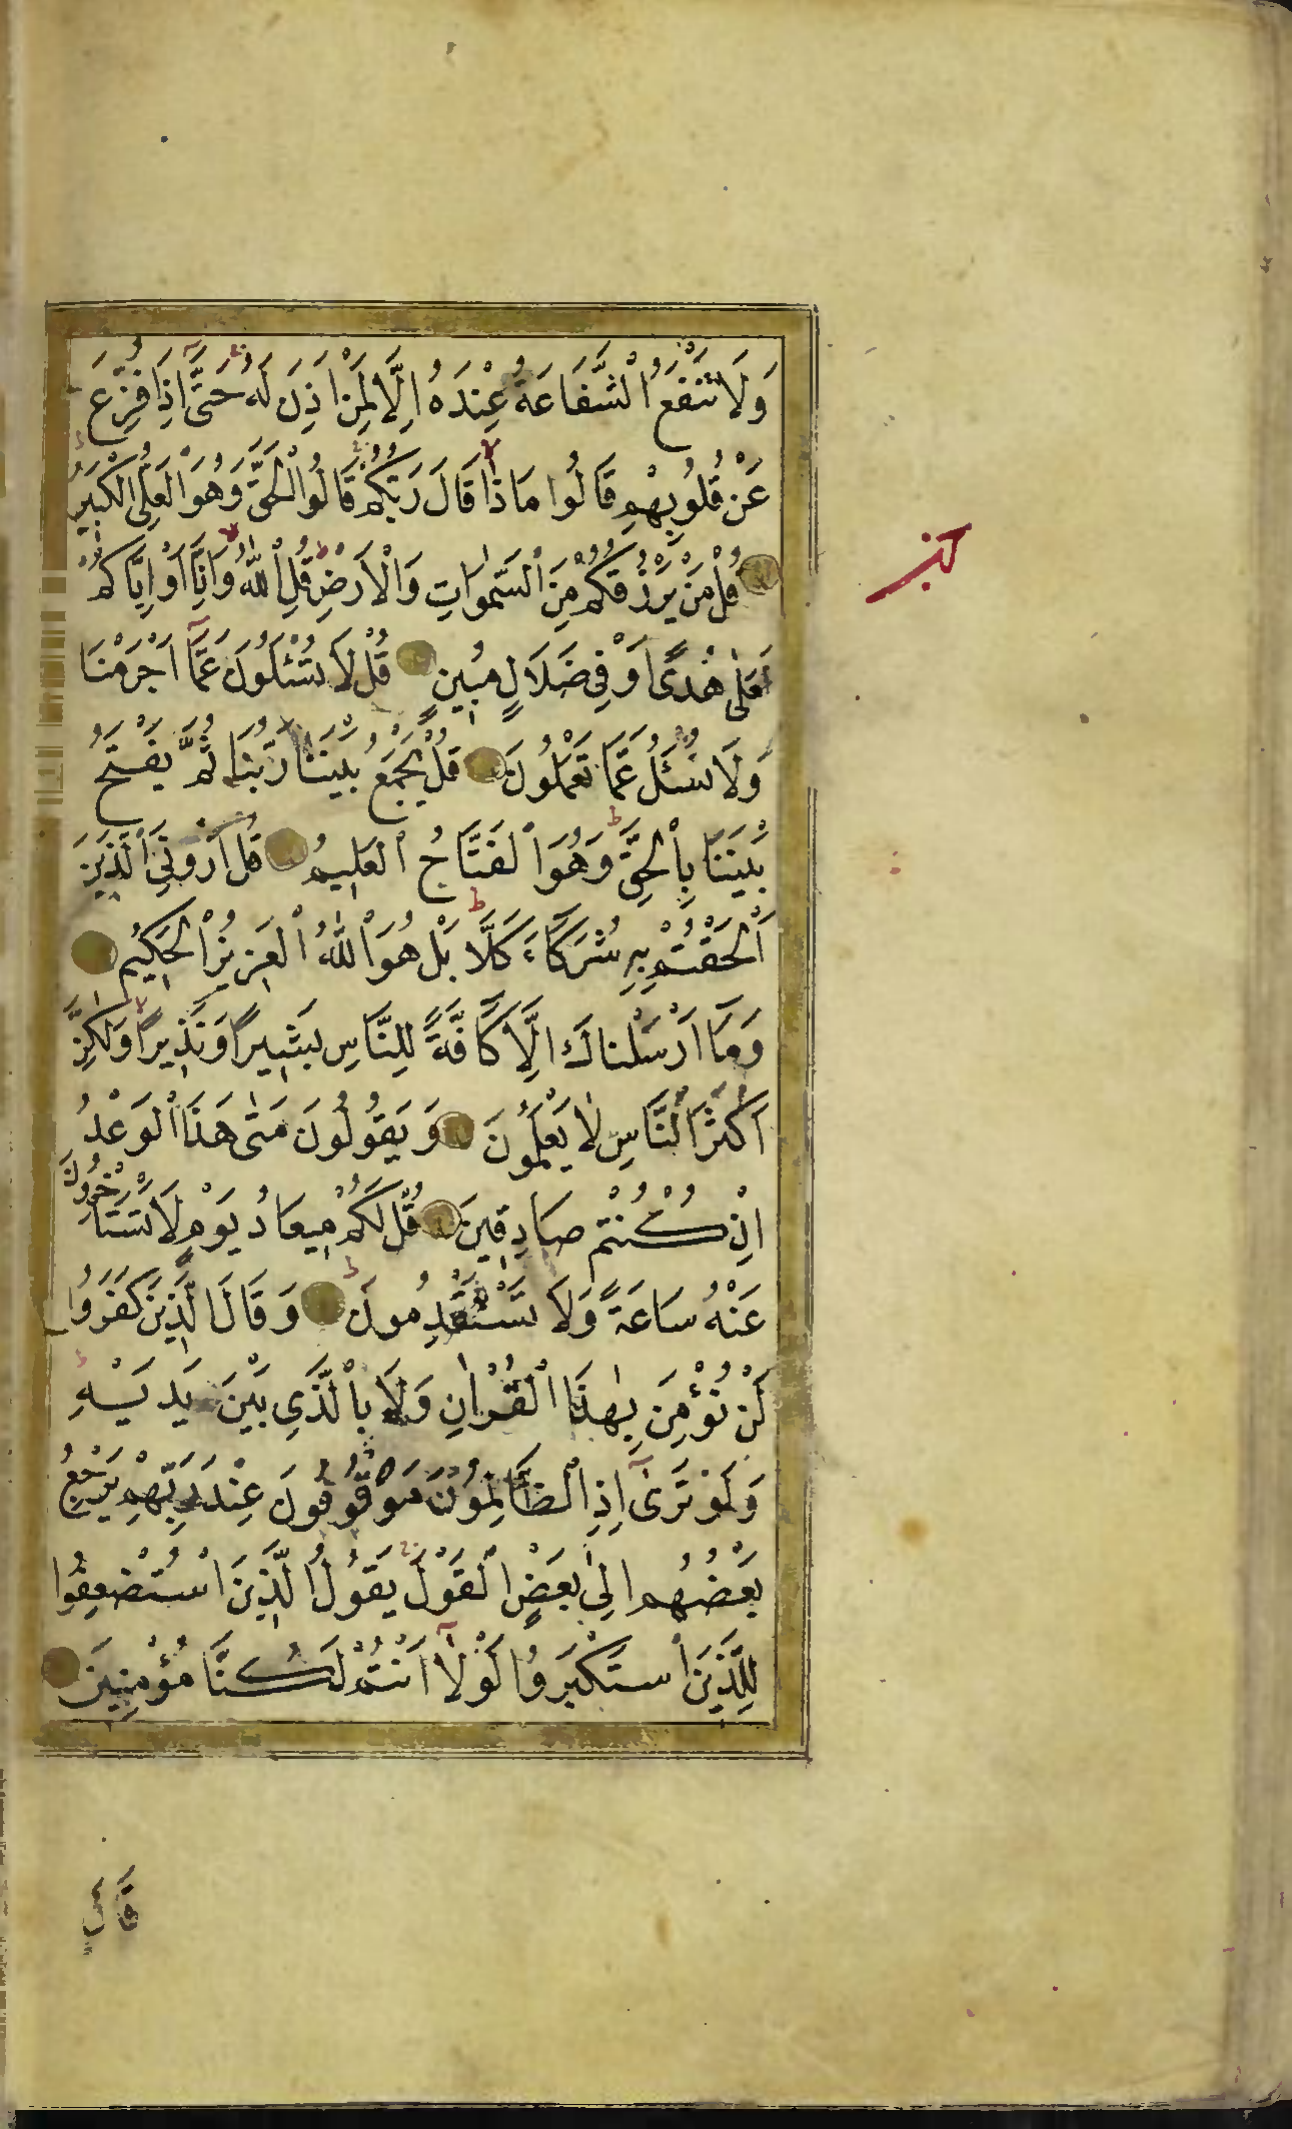 وَلَا تَنْفَعُ الشَّفَاعَةُ عِنْدَهُ اِلَّا لِمَنْ اَذِنَ لَهُ حَتَّىٰٓ اِذَا فُزِّعَ
عَنْ قُلُوبِهِمْ قَالُوا مَاذَا قَالَ رَبُّكُمْ قَالُوا الْحَقَّ وَهُوَ الْعَلِىُّ الْكَبِيرُ
قُلْ مَنْ يَرْزُقُكُمْ مِنَ السَّمٰوَاتِ وَالْاَرْضِ قُلِ اللّٰهُ وَاِنَّآ اَوْ اِيَّاكُمْ
لَعَلٰى هُدًى اَوْ فِى ضَلَالٍ مُبِينٍ قُلْ لَا تُسْئَلُونَ عَمَّآ اَجْرَمْنَا
وَلَا نُسْئَلُ عَمَّا تَعْمَلُونَ قُلْ يَجْمَعُ بَيْنَنَا رَبُّنَا ثُمَّ يَفْتَحُ
بَيْنَنَا بِالْحَقِّ وَهُوَ الْفَتَّاحُ الْعَلِيمُ قُلْ اَرُونِىَ الَّذِينَ
اَلْحَقْتُمْ بِهِ شُرَكَآءَ كَلَّا بَلْ هُوَ اللّٰهُ الْعَزِيزُ الْحَكِيمُ
وَمَآ اَرْسَلْنَاكَ اِلَّا كَآفَّةً لِلنَّاسِ بَشِيرًا وَنَذِيرًا وَلٰكِنَّ
اَكْثَرَ النَّاسِ لَا يَعْلَمُونَ وَيَقُولُونَ مَتٰى هَذَا الْوَعْدُ
اِنْ كُنْتُمْ صَادِقِينَ قُلْ لَكُمْ مِيعَادُ يَوْمٍ لَا تَسْتَأْخِرُونَ
عَنْهُ سَاعَةً وَلَا تَسْتَقْدِمُونَ وَقَالَ الَّذِينَ كَفَرُوا
لَنْ نُؤْمِنَ بِهٰذَا الْقُرْاٰنِ وَلَا بِالَّذِى بَيْنَ يَدَيْهِ
وَلَوْ تَرٰىٓ اِذِ الظَّالِمُونَ مَوْقُوفُونَ عِنْدَ رَبِّهِمْ يَرْجِعُ
بَعْضُهُمْ اِلٰى بَعْضٍ الْقَوْلَ يَقُولُ الَّذِينَ اسْتُضْعِفُوا
لِلَّذِينَ اسْتَكْبَرُوا لَوْلَآ اَنْتُمْ لَكُنَّا مُؤْمِنِينَ
قَالَ